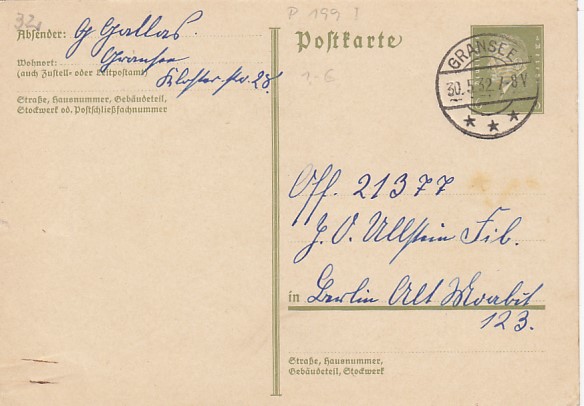 32
P 199 I
1-6
Absender: G Gallas
Gransee
Wohnort:
(auch Zustell- oder Leitpostamt)
Klosterstr. 28
Straße, Hausnummer, Gebäudeteil,
Stockwerk od. Postschließfachnummer
Postkarte
GRANSEE
30.5.32.7-8V
Off. 21377
J. V. Ullstein Fil.
in Berlin Alt Moabit
123.
Straße, Hausnummer,
Gebäudeteil, Stockwerk